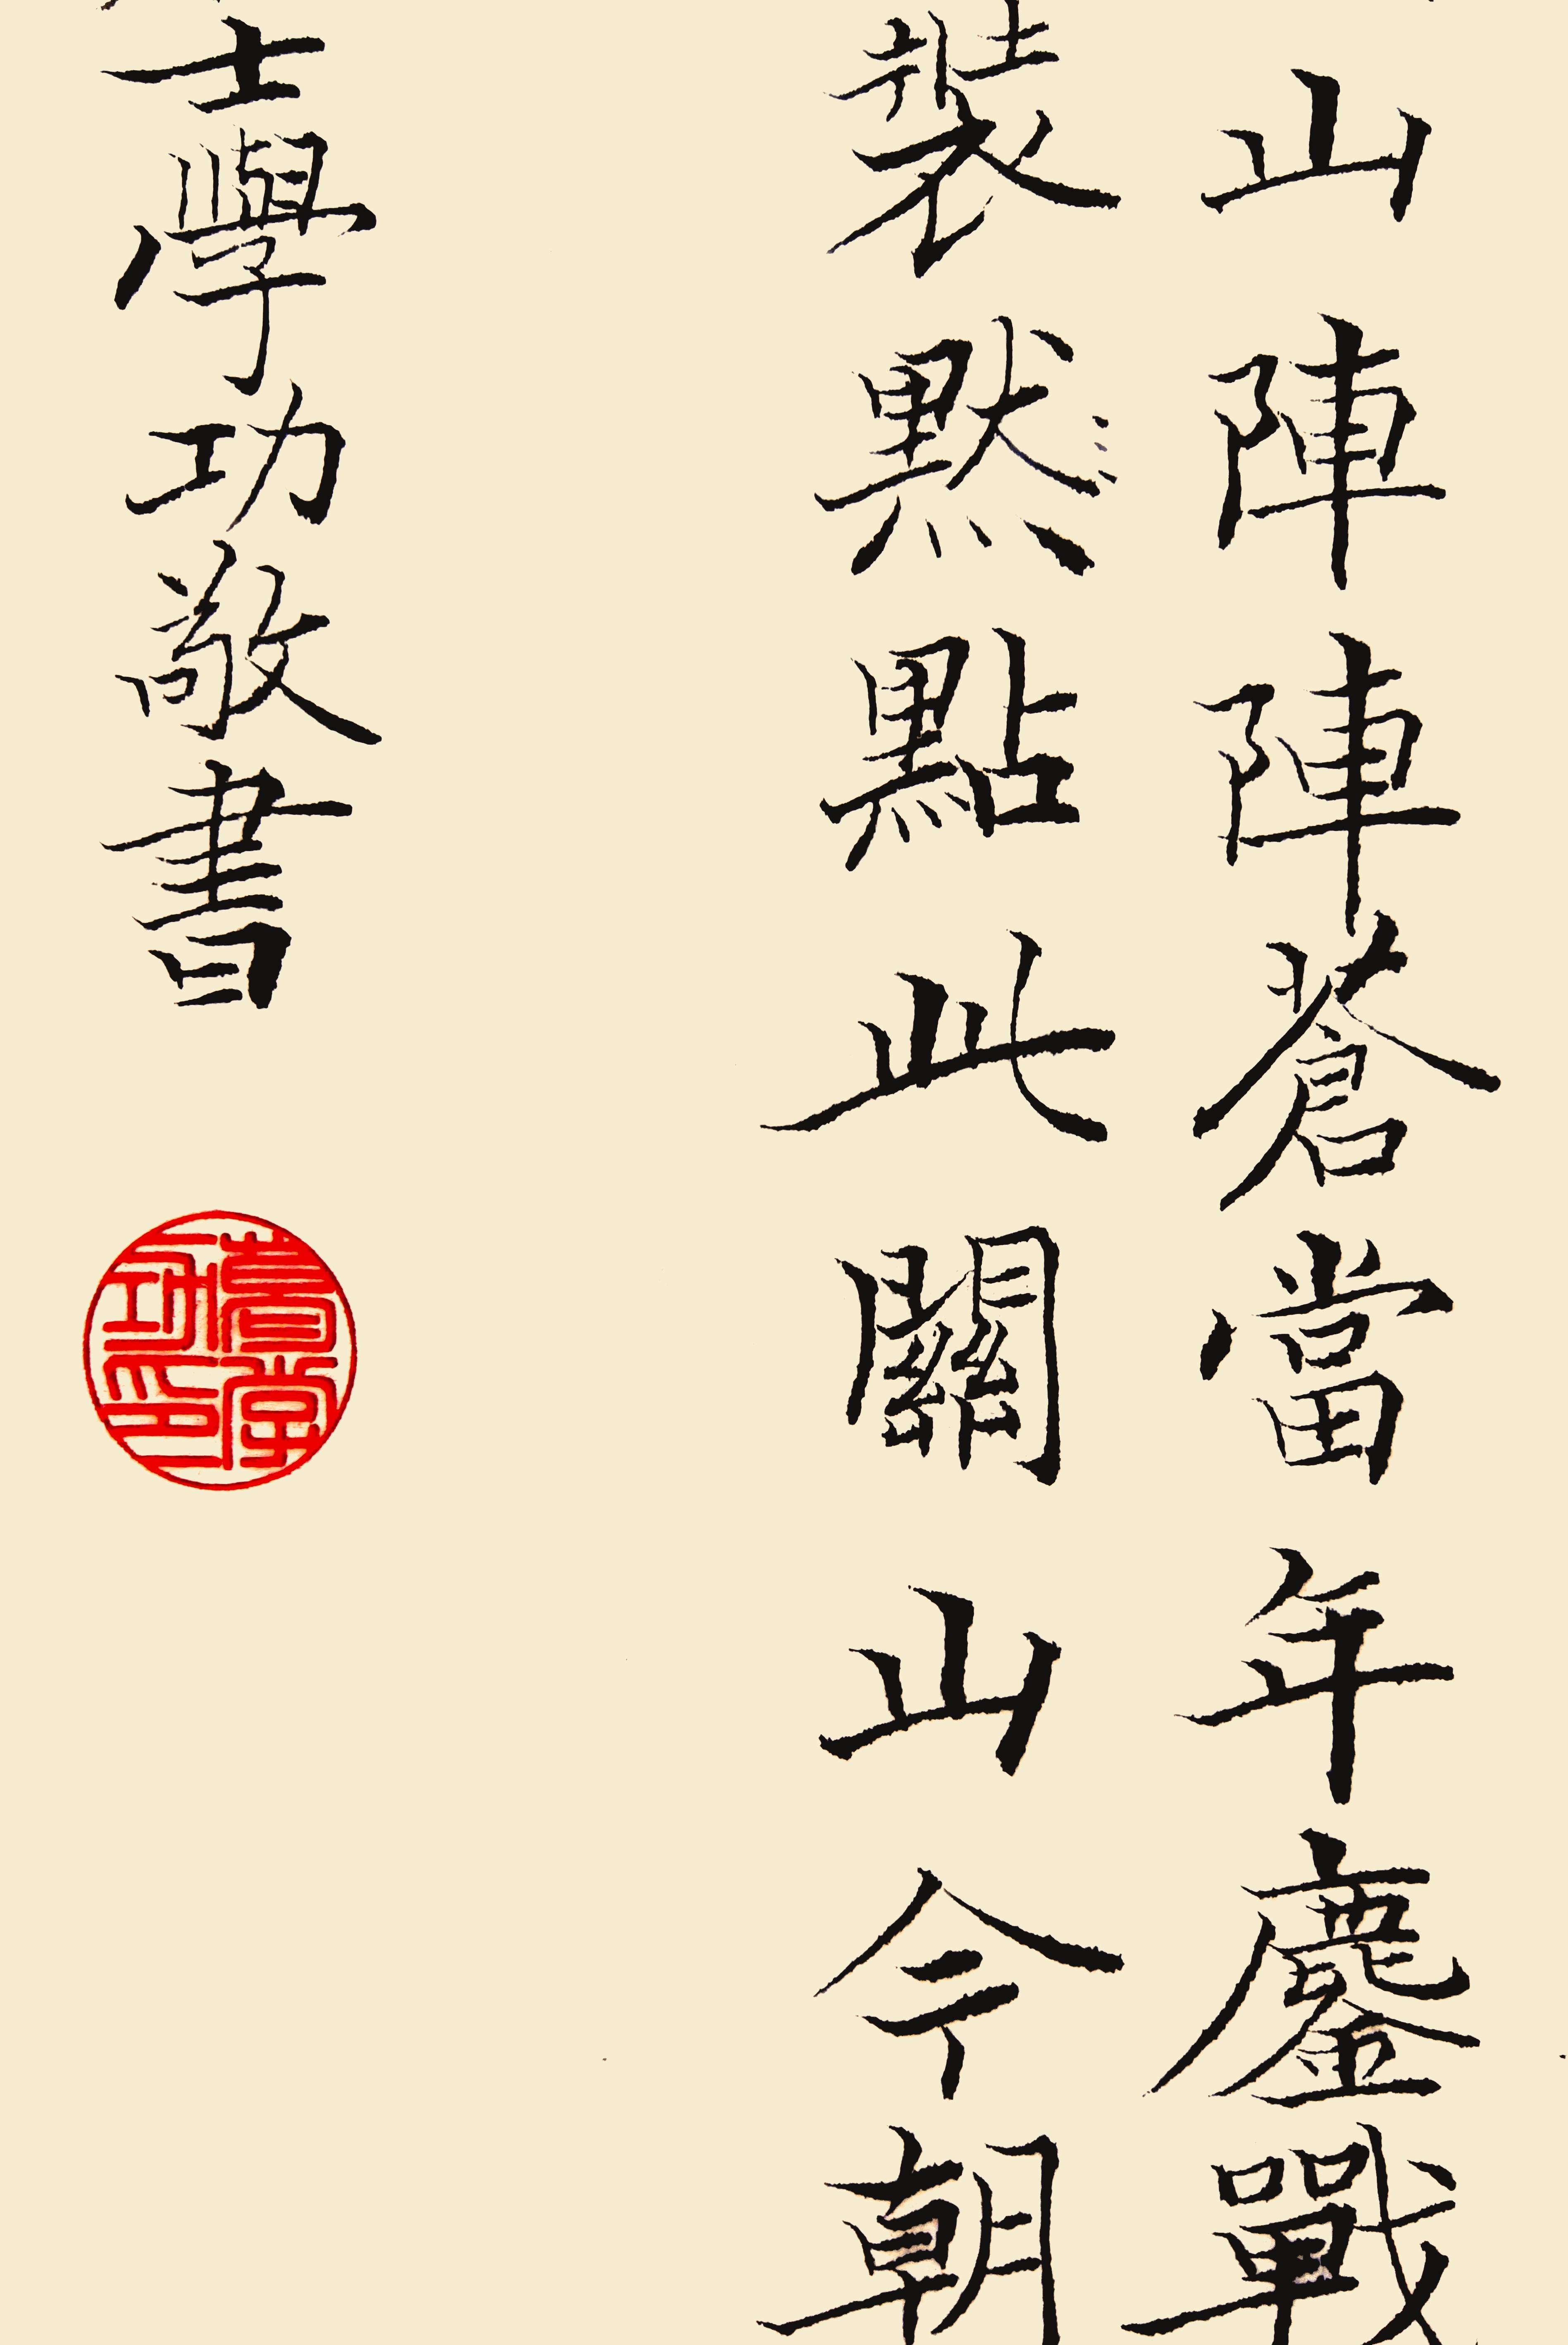 山陣陣蒼當年鏖戰
裝默點此關山今朝
士學功敬書
功印